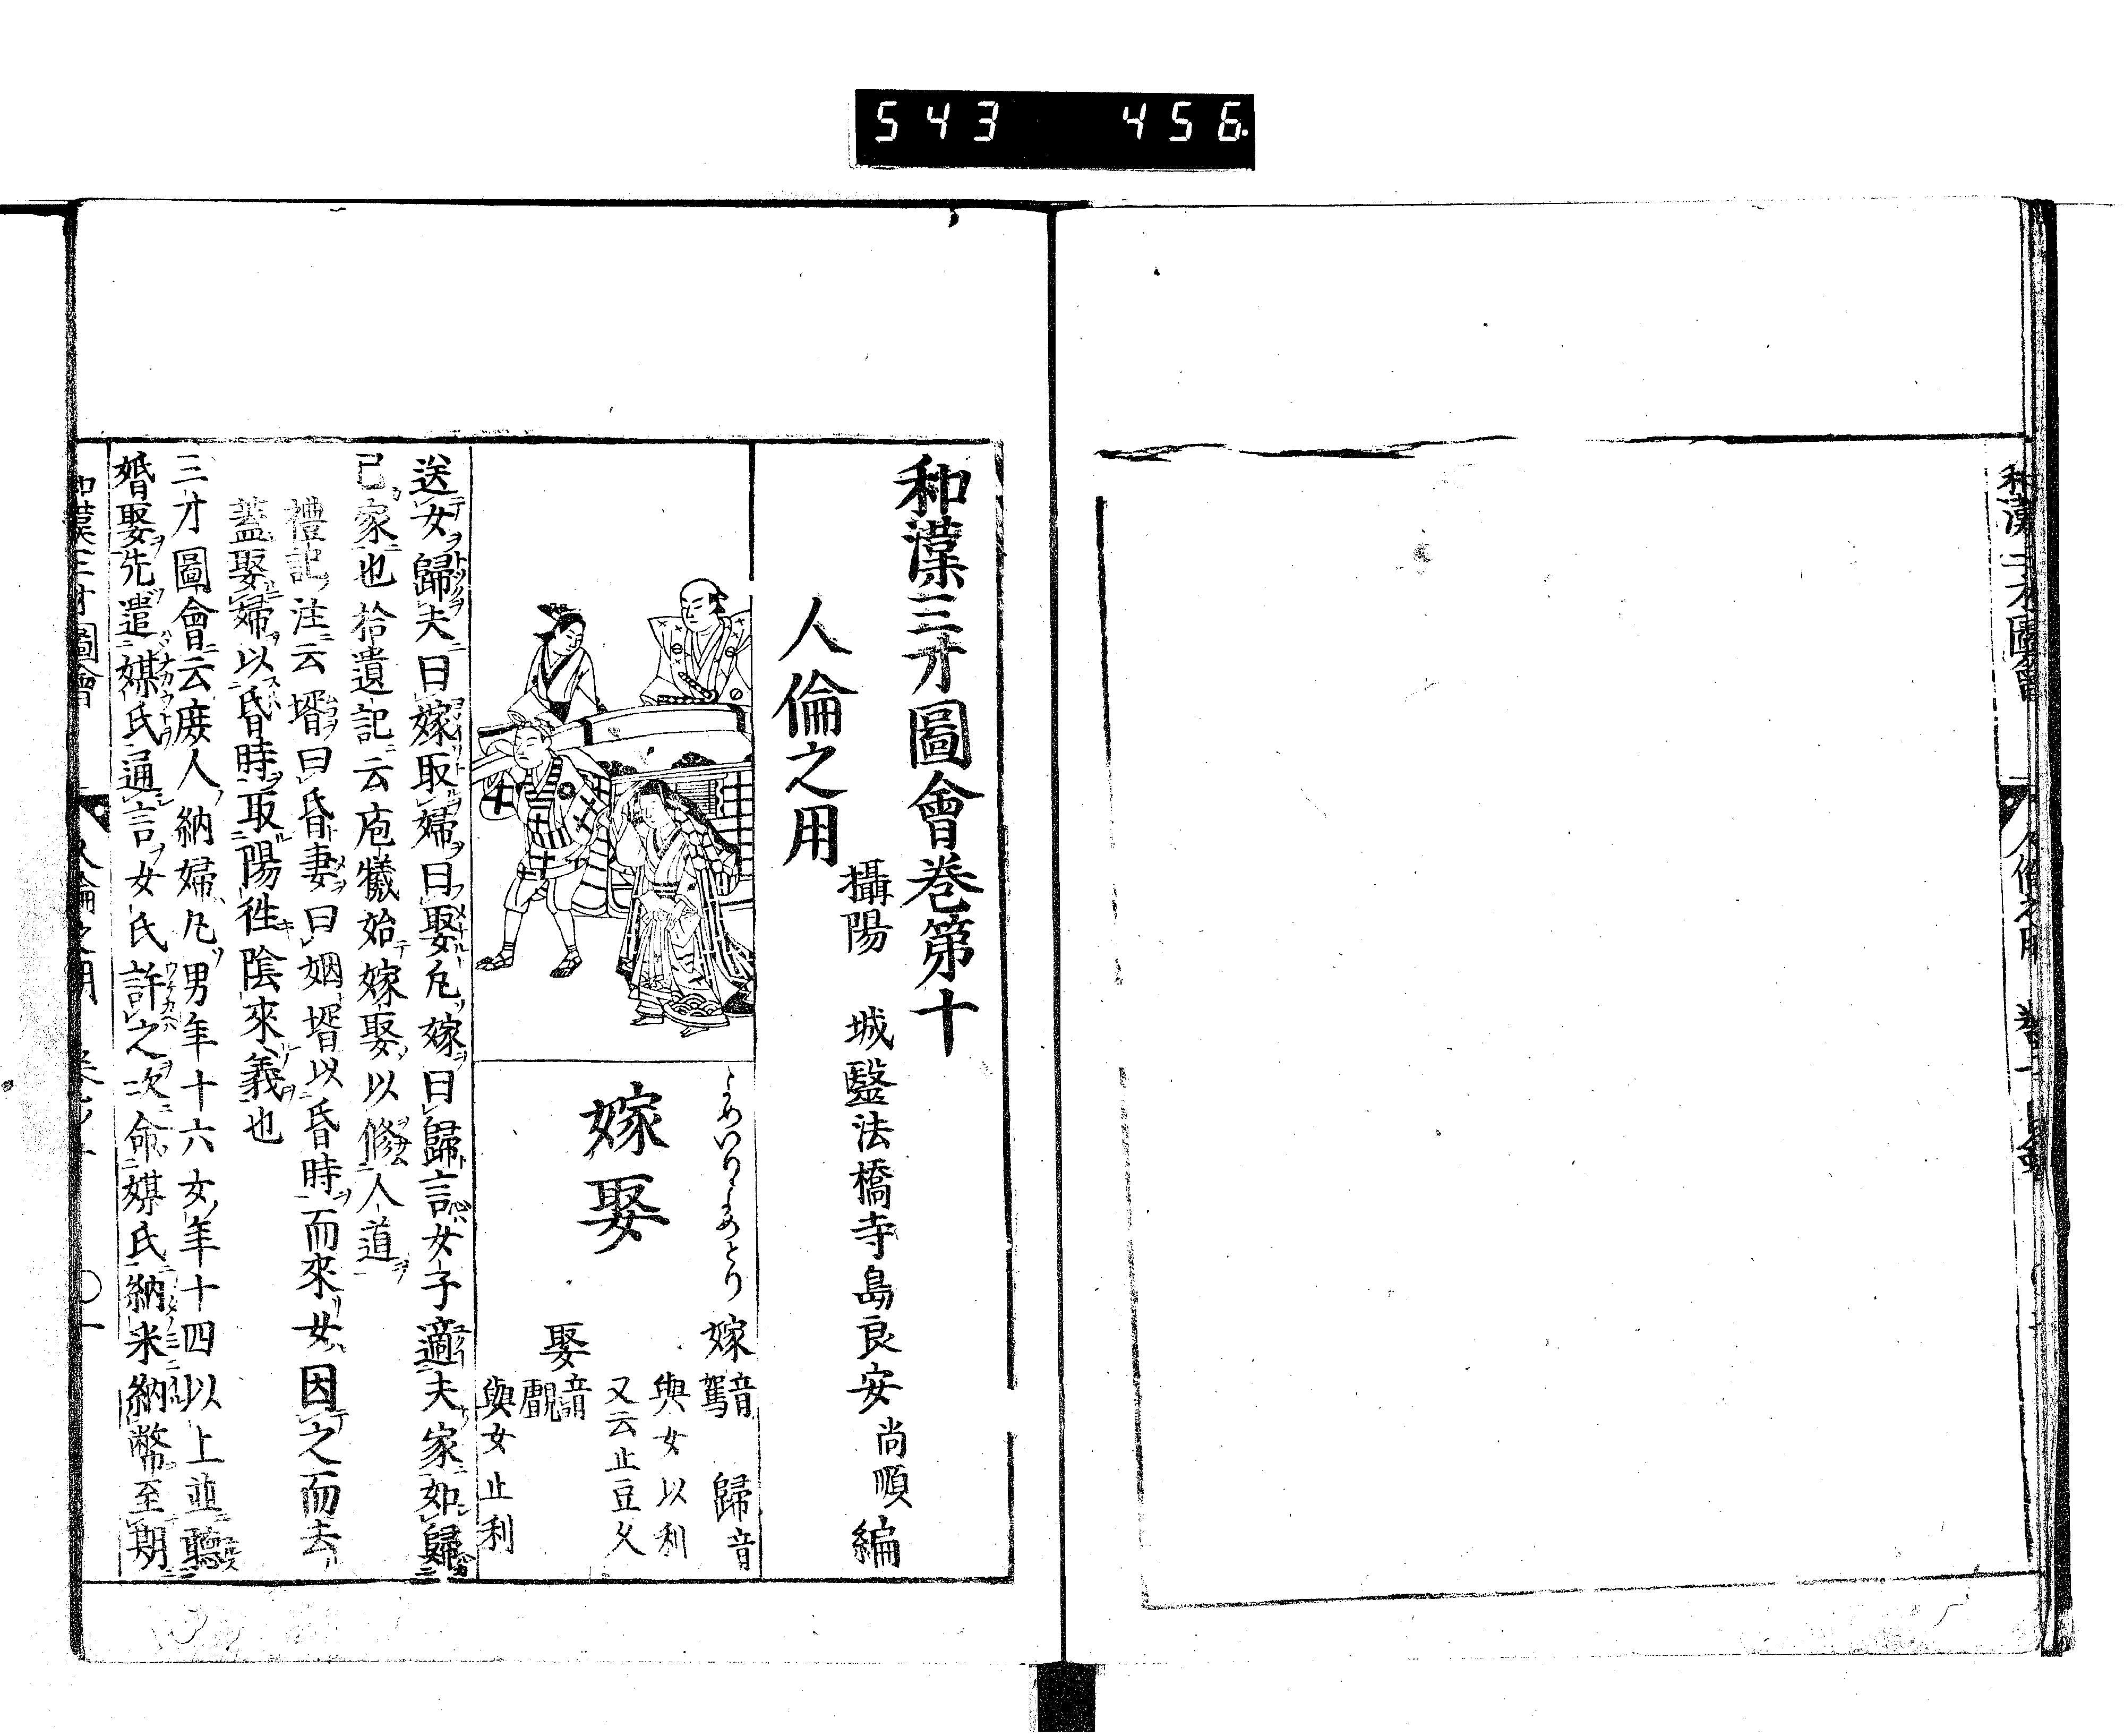 543 456
和漢三才圖會
人倫之用
和漢三才圖會卷第十
攝陽 城醫法橋寺島良安尚順編
人倫之用
よめいり よめとり
嫁娶
嫁 音駕 歸音
與女以利
又云止豆久
娶 音覰
與女止利
送女歸夫曰嫁取婦曰娶凡嫁曰歸言女子適夫家如歸
己家也拾遺記云庖犧始嫁娶以修人道
禮記注云壻曰昏妻曰姻壻以昏時而來女因之而去
蓋娶婦以昏時取陽徃陰來義也
三才圖會云庶人納婦凡男年十六女年十四以上並聽
婚娶先遣媒氏通言女氏許之次命媒氏納采納幣至期
和漢三才圖會 人倫之用 卷之十 〇一